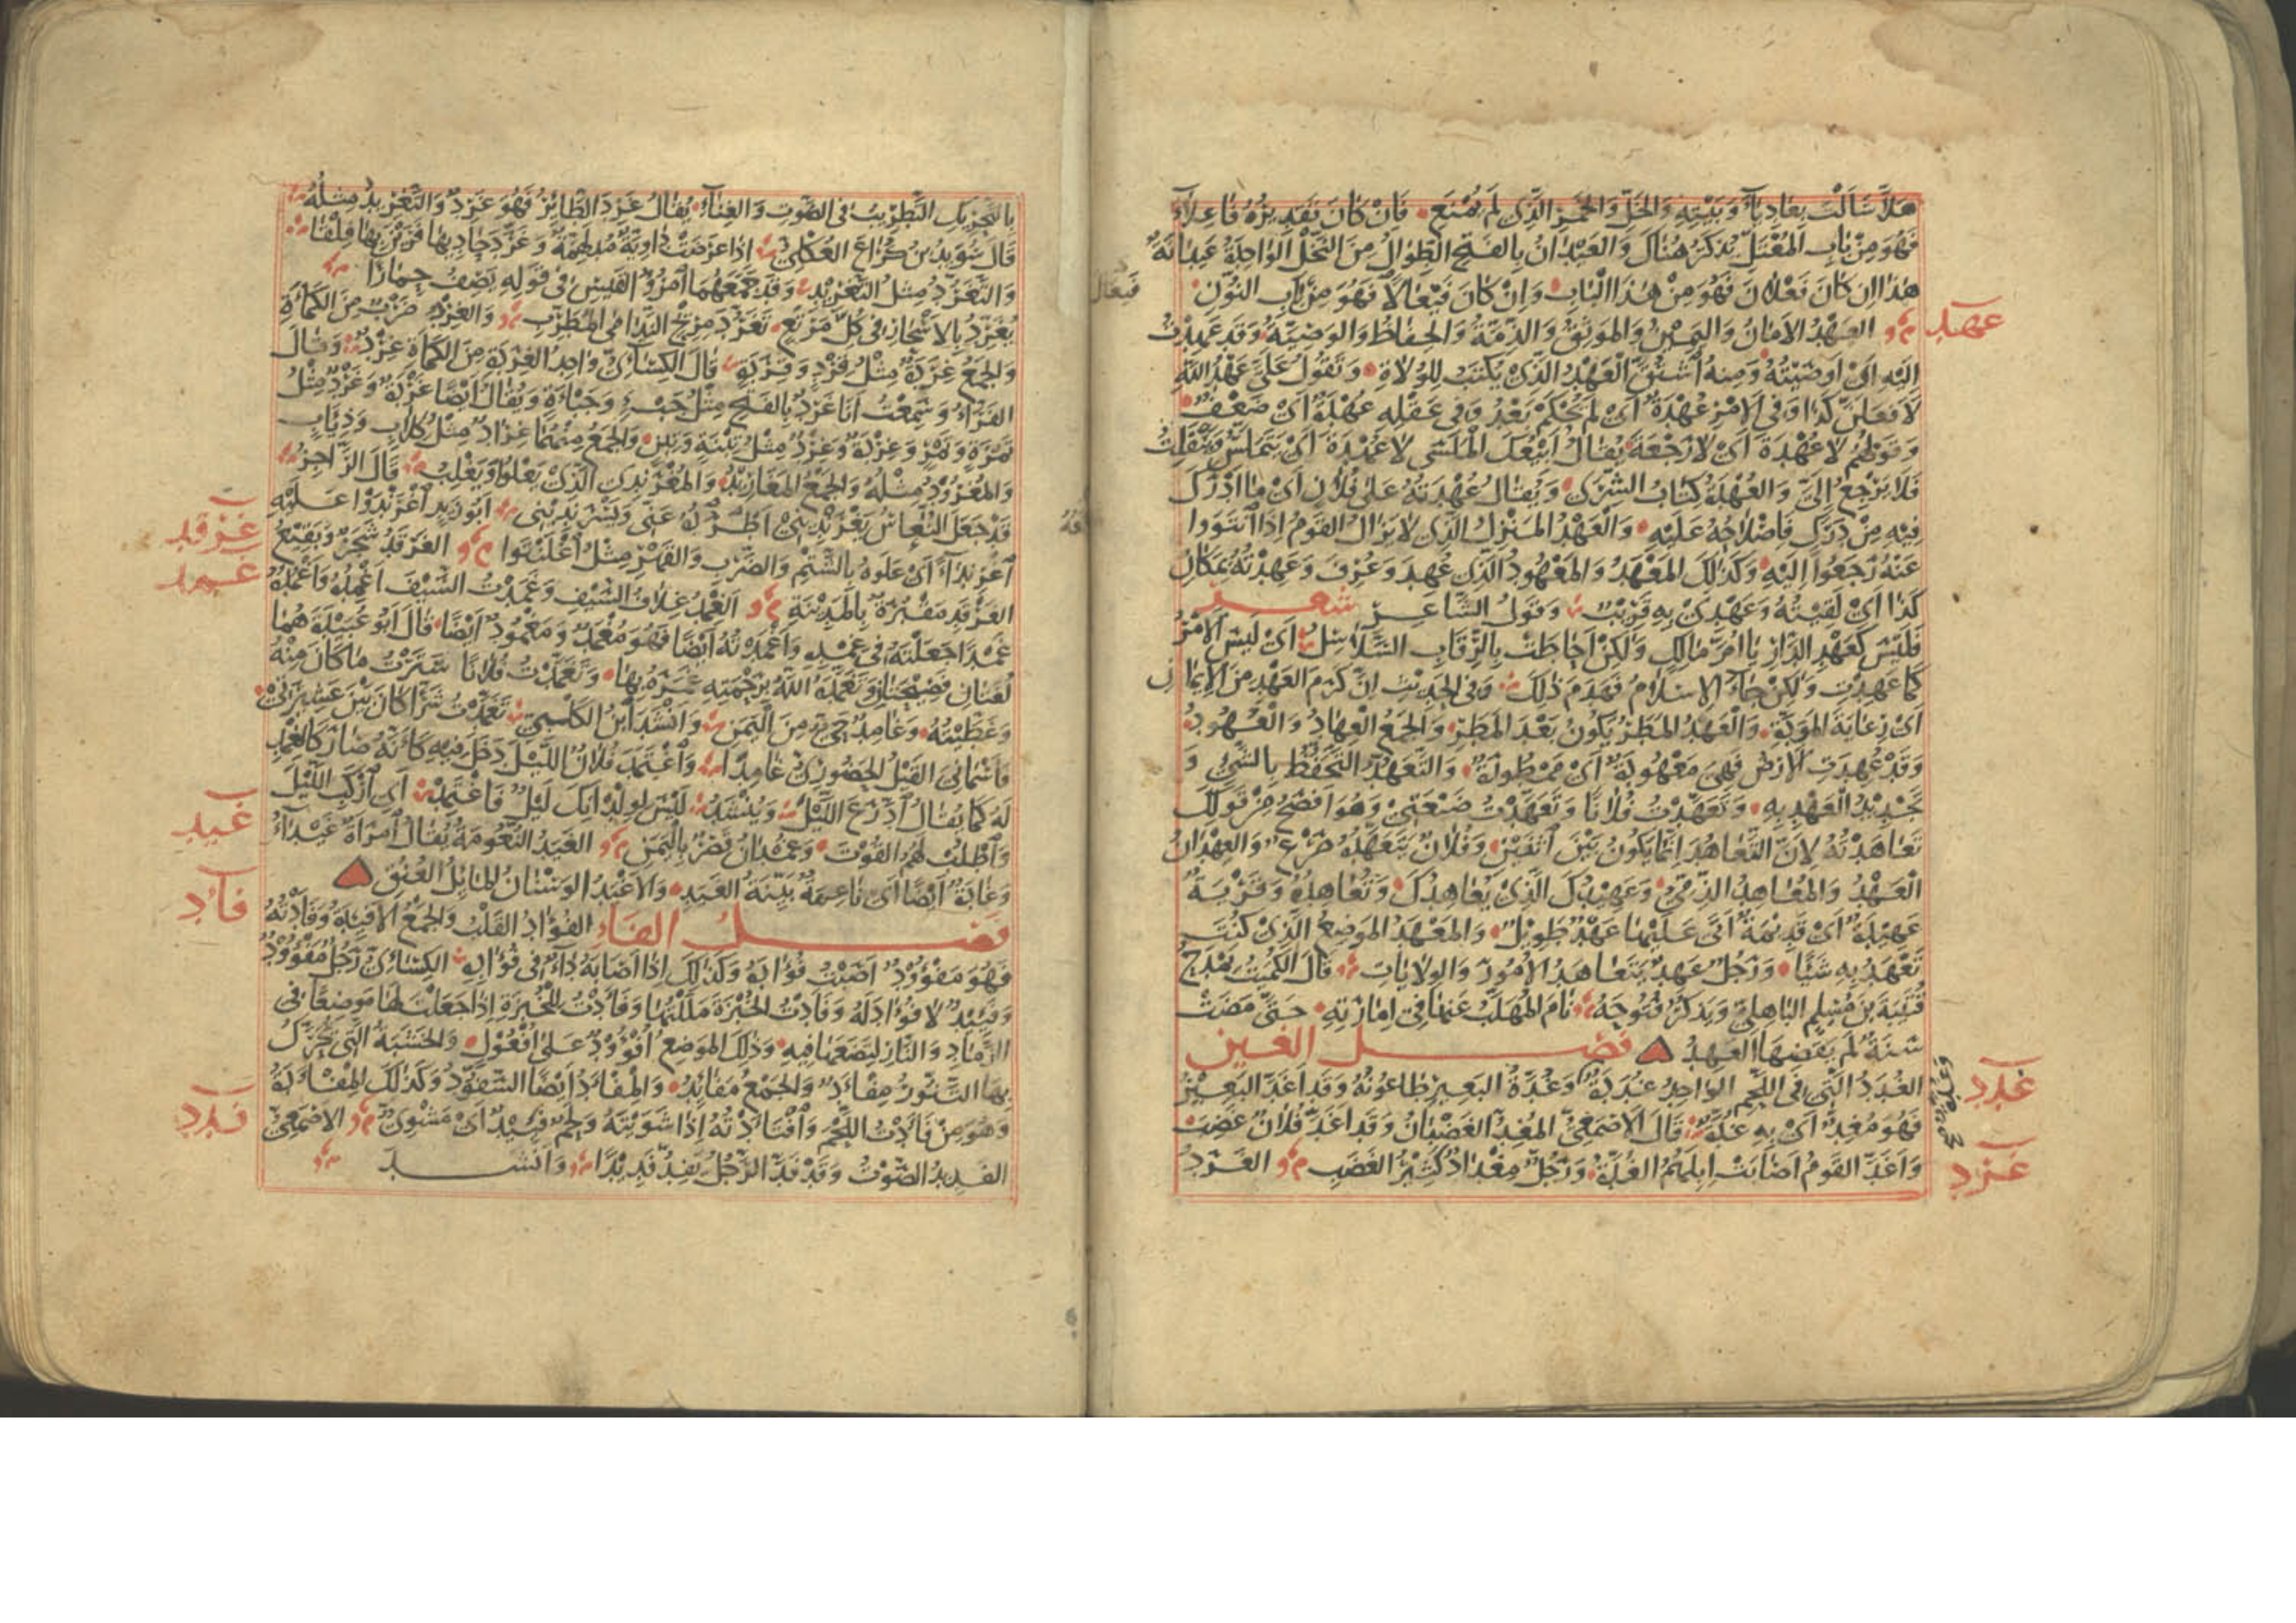 هَلَّا سَأَلْتَ بِعَادِيَاءَ وَبَيْتِهِ وَالْخَلِّ وَالْخَمْرِ الَّذِي لَمْ يُمْنَعِ فَإِنْ كَانَ تَقْدِيرُهُ فَاعِلَاءَ
فَهُوَ مِنْ بَابِ الْمُعْتَلِّ يُذْكَرُ هُنَاكَ وَالْعَيْدَانُ بِالْفَتْحِ الطِّوَالُ مِنَ النَّخْلِ الْوَاحِدَةُ عَيْدَانَةٌ
هٰذَا إِنْ كَانَ فَعْلَانَ فَهُوَ مِنْ هٰذَا الْبَابِ وَإِنْ كَانَ فَيْعَالًا فَهُوَ مِنْ بَابِ النُّونِ
فيعال
عهد
الْعَهْدُ الْأَمَانُ وَالْيَمِينُ وَالْمَوْثِقُ وَالذِّمَّةُ وَالْحِفَاظُ وَالْوَصِيَّةُ وَقَدْ عَهِدْتُ
إِلَيْهِ أَيْ أَوْصَيْتُهُ وَمِنْهُ اشْتُقَّ الْعَهْدُ الَّذِي يُكْتَبُ لِلْوُلَاةِ وَتَقُولُ عَلَيَّ عَهْدُ اللَّهِ
لَأَفْعَلَنَّ كَذَا وَفِي الْأَمْرِ عُهْدَةٌ أَيْ لَمْ يُحْكَمْ بَعْدُ وَفِي عَقْلِهِ عُهْدَةٌ أَيْ ضَعْفٌ
وَقَوْلُهُمْ لَا عُهْدَةَ أَيْ لَا رَجْعَةَ يُقَالُ أَبِيعُكَ الْمَلَسَى لَا عُهْدَةَ أَيْ يَتَمَلَّسُ وَيَنْفَلِتُ
فَلَا يَرْجِعُ إِلَيَّ وَالْعُهْدَةُ كِتَابُ الشِّرَى وَيُقَالُ عُهْدَتُهُ عَلَى فُلَانٍ أَيْ مَا أُدْرِكَ
فِيهِ مِنْ دَرَكٍ فَإِصْلَاحُهُ عَلَيْهِ وَالْعَهْدُ الْمَنْزِلُ الَّذِي لَا يَزَالُ الْقَوْمُ إِذَا انْتَوَوْا
عَنْهُ رَجَعُوا إِلَيْهِ وَكَذٰلِكَ الْمَعْهَدُ وَالْمَعْهُودُ الَّذِي عُهِدَ وَعُرِفَ وَعَهِدْتُهُ بِمَكَانِ
كَذَا أَيْ لَقِيتُهُ وَعَهْدِي بِهِ قَرِيبٌ وَقَوْلُ الشَّاعِرِ شعر
فَلَيْسَ كَعَهْدِ الدَّارِ يَا أُمَّ مَالِكٍ وَلٰكِنْ أَحَاطَتْ بِالرِّقَابِ السَّلَاسِلُ أَيْ لَيْسَ الْأَمْرُ
كَمَا عَهِدْتِ وَلٰكِنْ جَاءَ الْإِسْلَامُ فَهَدَمَ ذٰلِكَ وَفِي الْحَدِيثِ إِنَّ كَرَمَ الْعَهْدِ مِنَ الْإِيمَانِ
أَيْ رِعَايَةَ الْمَوَدَّةِ وَالْعَهْدُ الْمَطَرُ يَكُونُ بَعْدَ الْمَطَرِ وَالْجَمْعُ الْعِهَادُ وَالْعُهُودُ
وَقَدْ عُهِدَتِ الْأَرْضُ فَهِيَ مَعْهُودَةٌ أَيْ مَمْطُورَةٌ وَالتَّعَهُّدُ التَّحَفُّظُ بِالشَّيْءِ وَ
تَجْدِيدُ الْعَهْدِ بِهِ وَتَعَهَّدْتُ فُلَانًا وَتَعَهَّدْتُ ضَيْعَتِي وَهُوَ أَفْصَحُ مِنْ قَوْلِكَ
تَعَاهَدْتُهُ لِأَنَّ التَّعَاهُدَ إِنَّمَا يَكُونُ بَيْنَ اثْنَيْنِ وَفُلَانٌ يَتَعَهَّدُهُ صَرْعٌ وَالْعِهْدَانُ
الْعَهْدُ وَالْمُعَاهَدُ الذِّمِّيُّ وَعَهِيدُكَ الَّذِي يُعَاهِدُكَ وَتُعَاهِدُهُ وَقَرْيَةٌ
عَهِيدَةٌ أَيْ قَدِيمَةٌ أَتَى عَلَيْهَا عَهْدٌ طَوِيلٌ وَالْمَعْهَدُ الْمَوْضِعُ الَّذِي كُنْتَ
تَعْهَدُ بِهِ شَيْئًا وَرَجُلٌ عَهِدٌ يَتَعَاهَدُ الْأُمُورَ وَالْوِلَايَاتِ قَالَ الْكُمَيْتُ يَمْدَحُ
قُتَيْبَةَ بْنَ مُسْلِمٍ الْبَاهِلِيَّ وَيَذْكُرُ فُتُوحَهُ نَامَ الْمُهَلَّبُ عَنْهَا فِي إِمَارَتِهِ حَتَّى مَضَتْ
سَنَةٌ لَمْ يَقْضِهَا الْعَهِدُ فصل الغين
غدد
الْغُدَدُ الَّتِي فِي اللَّحْمِ الْوَاحِدَةُ غُدَدَةٌ وَغُدَّةُ الْبَعِيرِ طَاعُونُهُ وَقَدْ أَغَدَّ الْبَعِيرُ
فَهُوَ مُغِدٌّ أَيْ بِهِ غُدَّةٌ قَالَ الْأَصْمَعِيُّ الْمُغِدُّ الْغَضْبَانُ وَقَدْ أَغَدَّ فُلَانٌ غَضِبَ
غرد
وَأَغَدَّ الْقَوْمُ أَصَابَتْ إِبِلَهُمُ الْغُدَّةُ وَرَجُلٌ مِغْدَادٌ كَثِيرُ الْغَضَبِ الْغَرَدُ
بِالتَّحْرِيكِ التَّطْرِيبُ فِي الصَّوْتِ وَالْغِنَاءِ يُقَالُ غَرِدَ الطَّائِرُ فَهُوَ غَرِدٌ وَالتَّغْرِيدُ مِثْلُهُ
قَالَ سُوَيْدُ بْنُ كُرَاعَ الْعُكْلِيُّ إِذَا عَرَضَتْ دَاوِيَةٌ مُدْلَهِمَّةٌ وَغَرَّدَ حَادِيهَا فَرَيْنَ بِهَا فِلْقَا
وَالتَّغَرُّدُ مِثْلُ التَّغْرِيدِ وَقَدْ جَمَعَهُمَا امْرُؤُ الْقَيْسِ فِي قَوْلِهِ يَصِفُ حِمَارًا
يُغَرِّدُ بِالْأَسْحَارِ فِي كُلِّ مَرْتَعٍ تَغَرُّدَ مِرِّيحِ النَّدَامَى الْمُطَرِّبِ وَالْغِرْدُ ضَرْبٌ مِنَ الْكَمْأَةِ
وَالْجَمْعُ غِرَدَةٌ مِثْلُ قِرْدٍ وَقِرَدَةٍ قَالَ الْكِسَائِيُّ وَاحِدُ الْغِرَدَةِ مِنَ الْكَمْأَةِ غِرْدٌ وَقَالَ
الْفَرَّاءُ وَسَمِعْتُ أَنَا غَرْدٌ بِالْفَتْحِ مِثْلُ جَبْءٍ وَجَبْأَةٍ وَيُقَالُ أَيْضًا غَرْدَةٌ وَغَرْدٌ مِثْلُ
تَمْرَةٍ وَتَمْرٍ وَغِرْدَةٌ وَغِرْدٌ مِثْلُ تِبْنَةٍ وَتِبْنٍ وَالْجَمْعُ مِنْهُمَا غِرَادٌ مِثْلُ كِلَابٍ وَذِئَابٍ
وَالْمُغْرُودُ مِثْلُهُ وَالْجَمْعُ الْمَغَارِيدُ وَالْمُغْرَنْدِي الَّذِي يَعْلُو وَيَغْلِبُ قَالَ الرَّاجِزُ
قَدْ جَعَلَ النُّعَاسُ يَغْرَنْدِينِي أَطْرُدُهُ عَنِّي وَيَسْرَنْدِينِي أَبُو زَيْدٍ اغْرَنْدَوْا عَلَيْهِ
غرقد
اغْرِنْدَاءً أَيْ عَلَوْهُ بِالشَّتْمِ وَالضَّرْبِ وَالْقَهْرِ مِثْلُ اغْلَنْتَوْا الْغَرْقَدُ شَجَرٌ وَبَقِيعُ
غمد
الْغَرْقَدِ مَقْبُرَةٌ بِالْمَدِينَةِ الْغِمْدُ غِلَافُ السَّيْفِ وَغَمَدْتُ السَّيْفَ أَغْمِدُهُ وَأَغْمُدُهُ
غَمْدًا جَعَلْتَهُ فِي غِمْدِهِ وَأَغْمَدْتُهُ أَيْضًا فَهُوَ مُغْمَدٌ وَمَغْمُودٌ أَيْضًا قَالَ أَبُو عُبَيْدَةَ هُمَا
لُغَتَانِ فَصِيحَتَانِ وَتَغَمَّدَهُ اللَّهُ بِرَحْمَتِهِ غَمَرَهُ بِهَا وَتَغَمَّدْتُ فُلَانًا سَتَرْتُ مَا كَانَ مِنْهُ
وَغَطَّيْتُهُ وَغَامِدٌ حَيٌّ مِنَ الْيَمَنِ وَأَنْشَدَ ابْنُ الْكَلْبِيِّ تَغَمَّدْتُ شَرًّا كَانَ بَيْنَ عَشِيرَتِي
فَأَسْمَانِيَ الْقَيْلُ الْحَضُورِيُّ غَامِدَا وَاغْتَمَدَ فُلَانٌ اللَّيْلَ دَخَلَ فِيهِ كَأَنَّهُ صَارَ كَالْغِمْدِ
لَهُ كَمَا يُقَالُ ادَّرَعَ اللَّيْلَ وَيُنْشَدُ لَيْسَ لِوِلْدَانِكَ لَيْلٌ فَاغْتَمِدْ أَيِ ارْكَبِ اللَّيْلَ
غيد
وَاطْلُبْ لَهُمُ الْقُوتَ وَغُمْدَانُ قَصْرٌ بِالْيَمَنِ الْغَيَدُ النُّعُومَةُ يُقَالُ امْرَأَةٌ غَيْدَاءُ
وَغَادَةٌ أَيْضًا أَيْ نَاعِمَةٌ بَيِّنَةُ الْغَيَدِ وَالْأَغْيَدُ الْوَسْنَانُ الْمَائِلُ الْعُنُقِ
فأد
فصل الفاء الْفُؤَادُ الْقَلْبُ وَالْجَمْعُ الْأَفْئِدَةُ وَفَأَدْتُهُ
فَهُوَ مَفْؤُودٌ أَصَبْتُ فُؤَادَهُ وَكَذٰلِكَ إِذَا أَصَابَهُ دَاءٌ فِي فُؤَادِهِ الْكِسَائِيُّ رَجُلٌ مَفْؤُودٌ
وَفَئِيدٌ لَا فُؤَادَ لَهُ وَفَأَدْتُ الْخُبْزَةَ مَلَلْتُهَا وَفَأَدْتُ لِلْخُبْزَةِ إِذَا جَعَلْتَ لَهَا مَوْضِعًا فِي
الرَّمَادِ وَالنَّارِ لِتَضَعَهَا فِيهِ وَذٰلِكَ الْمَوْضِعُ أُفْؤُودٌ عَلَى أُفْعُولٍ وَالْخَشَبَةُ الَّتِي يُحَرَّكُ
بِهَا التَّنُّورُ مِفْأَدٌ وَالْجَمْعُ مَفَائِدُ وَالْمِفْأَدُ أَيْضًا السَّفُّودُ وَكَذٰلِكَ الْمِفْآدُ لَهُ
فدد
وَهُوَ مِنْ فَأَدْتُ اللَّحْمَ وَافْتَأَدْتُهُ إِذَا شَوَيْتَهُ وَلَحْمٌ فَئِيدٌ أَيْ مَشْوِيٌّ الْأَصْمَعِيُّ
الْفَدِيدُ الصَّوْتُ وَقَدْ فَدَّ الرَّجُلُ يَفِدُّ فَدِيدًا وَأَنْشَدَ